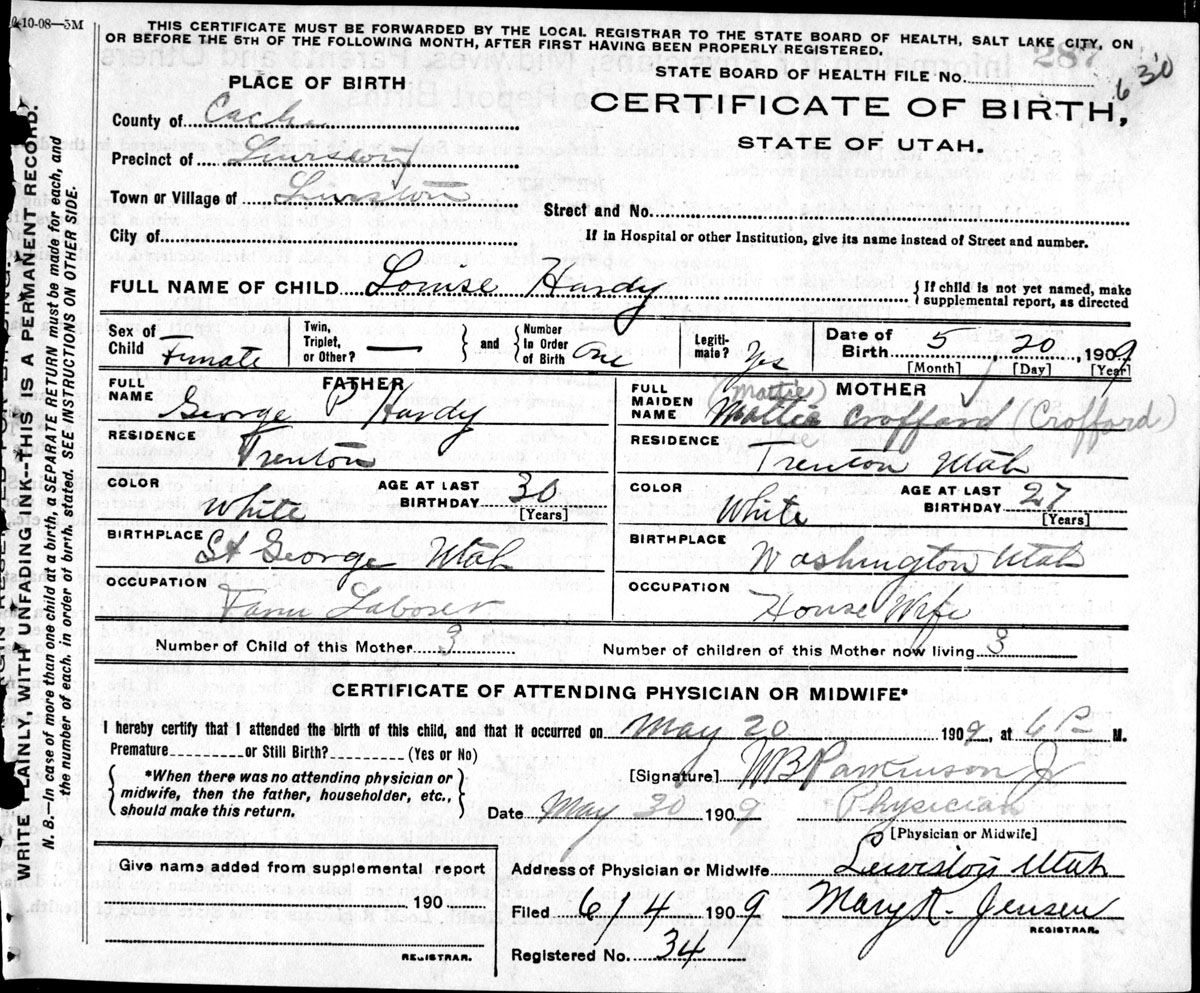 10-08—3M
THIS CERTIFICATE MUST BE FORWARDED BY THE LOCAL REGISTRAR TO THE STATE BOARD OF HEALTH, SALT LAKE CITY, ON
OR BEFORE THE 5TH OF THE FOLLOWING MONTH, AFTER FIRST HAVING BEEN PROPERLY REGISTERED.
287
STATE BOARD OF HEALTH FILE No. 6 30
PLACE OF BIRTH
CERTIFICATE OF BIRTH,
STATE OF UTAH.
County of Cache
Precinct of Lewiston
Town or Village of Lewiston
Street and No.
City of
If in Hospital or other Institution, give its name instead of Street and number.
FULL NAME OF CHILD Louise Hardy
{ If child is not yet named, make
supplemental report, as directed
Sex of Child Female
Twin, Triplet, or Other? —
and
Number In Order of Birth One
Legiti- mate? Yes
Date of Birth 5, 20, 1909
[Month] [Day] [Year]
FATHER
FULL NAME George P Hardy
RESIDENCE Trenton
COLOR White
AGE AT LAST BIRTHDAY 30 [Years]
BIRTHPLACE St George Utah
OCCUPATION Farm Laborer
MOTHER
FULL MAIDEN NAME (Mattie) Mattie Croffard (Crofford)
RESIDENCE Trenton Utah
COLOR White
AGE AT LAST BIRTHDAY 27 [Years]
BIRTHPLACE Washington Utah
OCCUPATION House Wife
Number of Child of this Mother 3
Number of children of this Mother now living 3
CERTIFICATE OF ATTENDING PHYSICIAN OR MIDWIFE*
I hereby certify that I attended the birth of this child, and that it occurred on May 20 1909, at 6 P M.
Premature or Still Birth? (Yes or No)
*When there was no attending physician or
midwife, then the father, householder, etc.,
should make this return.
[Signature] WB Parkinson Jr
Date May 30 1909
Physician
[Physician or Midwife]
Give name added from supplemental report
190
REGISTRAR.
Address of Physician or Midwife Lewiston Utah
Filed 6/4 1909 Mary R. Jensen
REGISTRAR.
Registered No. 34
WRITE PLAINLY, WITH UNFADING INK—THIS IS A PERMANENT RECORD.
N. B.—In case of more than one child at a birth, a SEPARATE RETURN must be made for each, and
the number of each, in order of birth, stated. SEE INSTRUCTIONS ON OTHER SIDE.